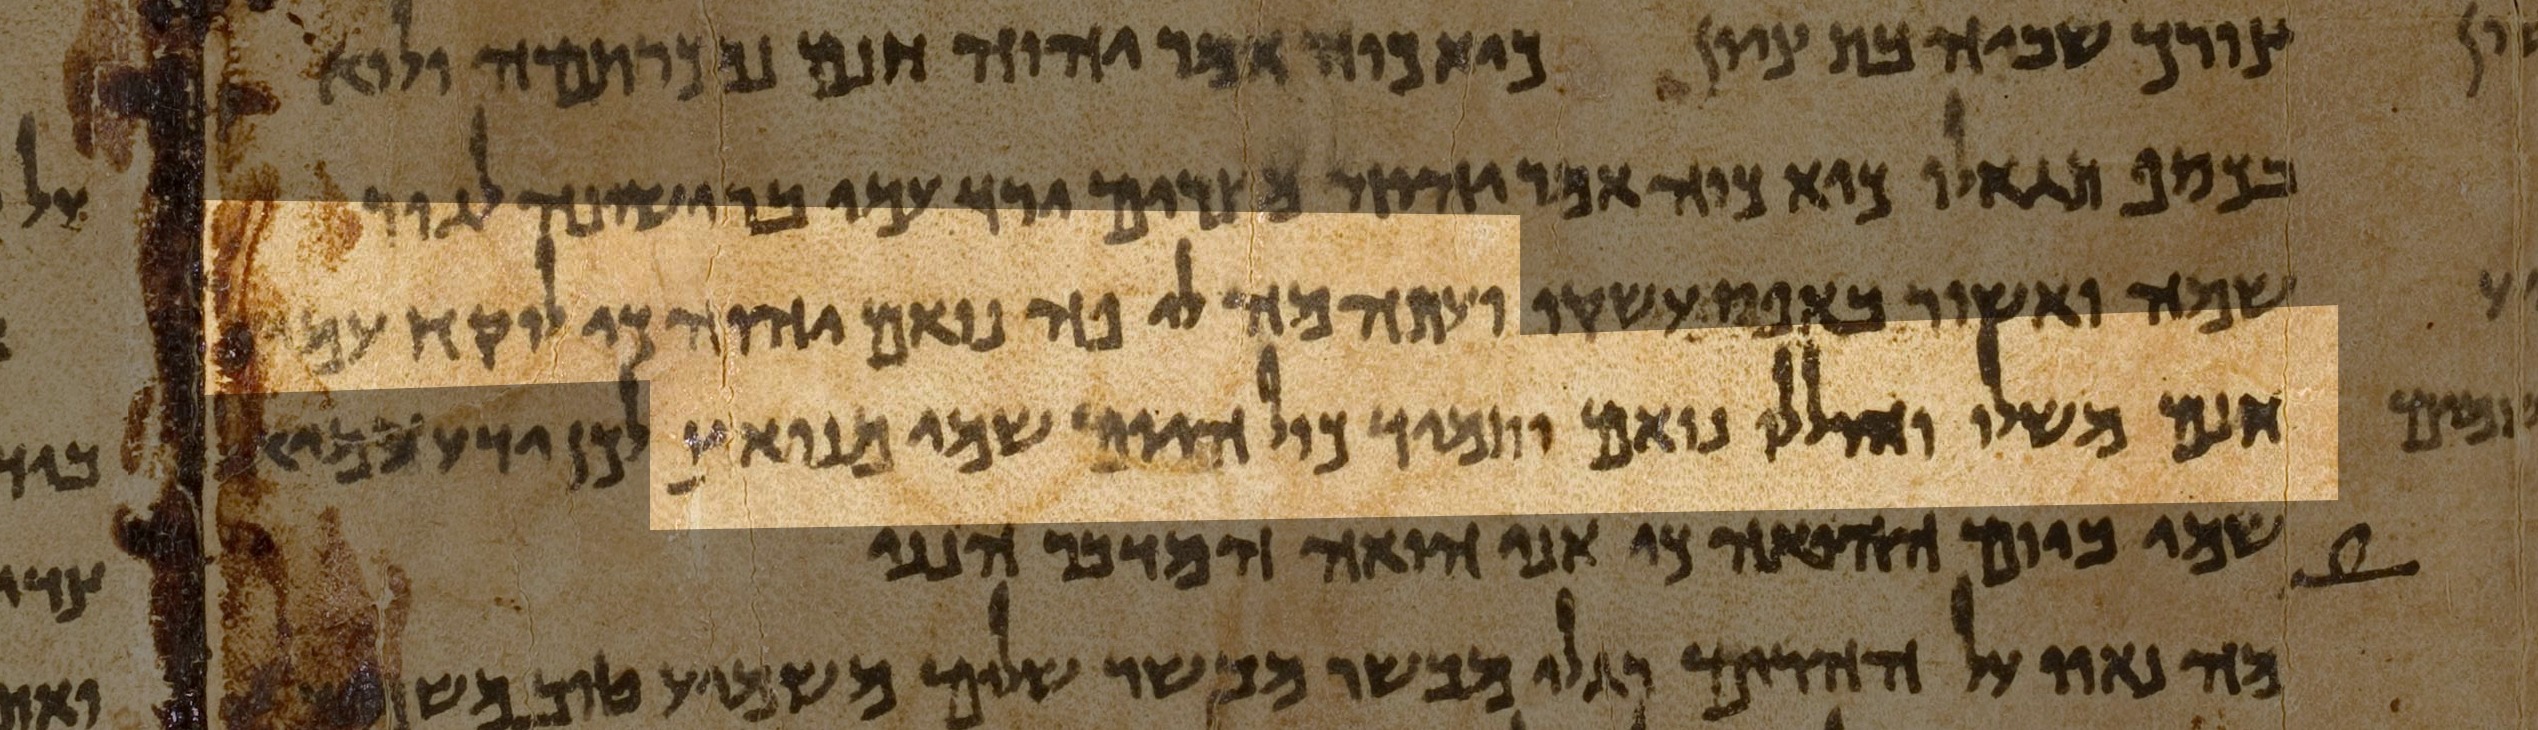 צורך שביה בת ציון כיא כוה אמר יהוה חנם נמכרתמה ולוא
בכסף תגאלו כיא כוה אמר יהוה מצרים ירד עמי ברישונה לגור
שמה ואשור באפס עשקו ועתה מה לי פה נואם יהוה כי לוקח עמי
חנם משליו והוללו נואם ותמיד כול היום שמי מנואץ לכן ידע
שמי ביום ההואה כי אני הואה המדבר הנני
מה נאוו על ההרים רגלי מבשר מבשר שלום משמיע טוב